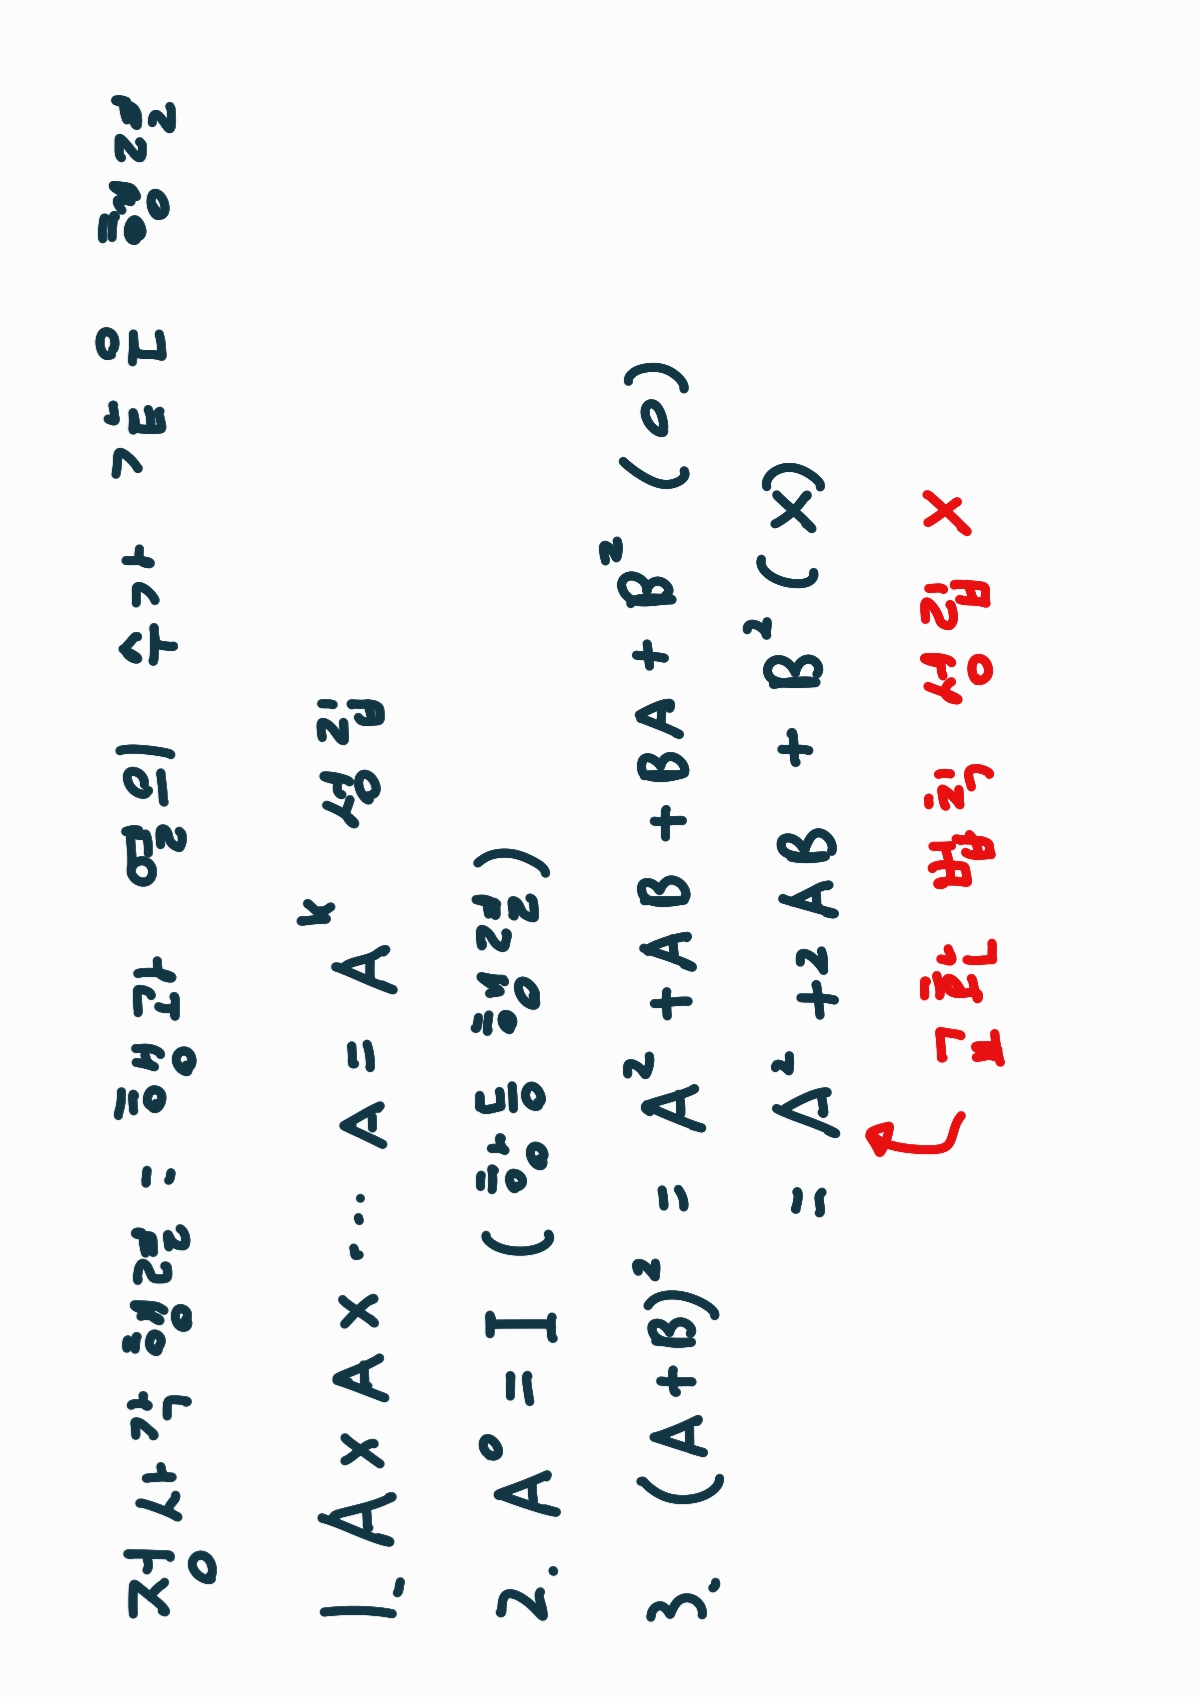 정사각행렬 = 행과 열의 수가 같은 행렬
1. A x A x ... A = Aᵏ 성립
2. A⁰ = I (항등행렬)
3. (A+B)² = A² + AB + BA + B² (o)
= A² +2AB + B² (x)
교환법칙 성립 X